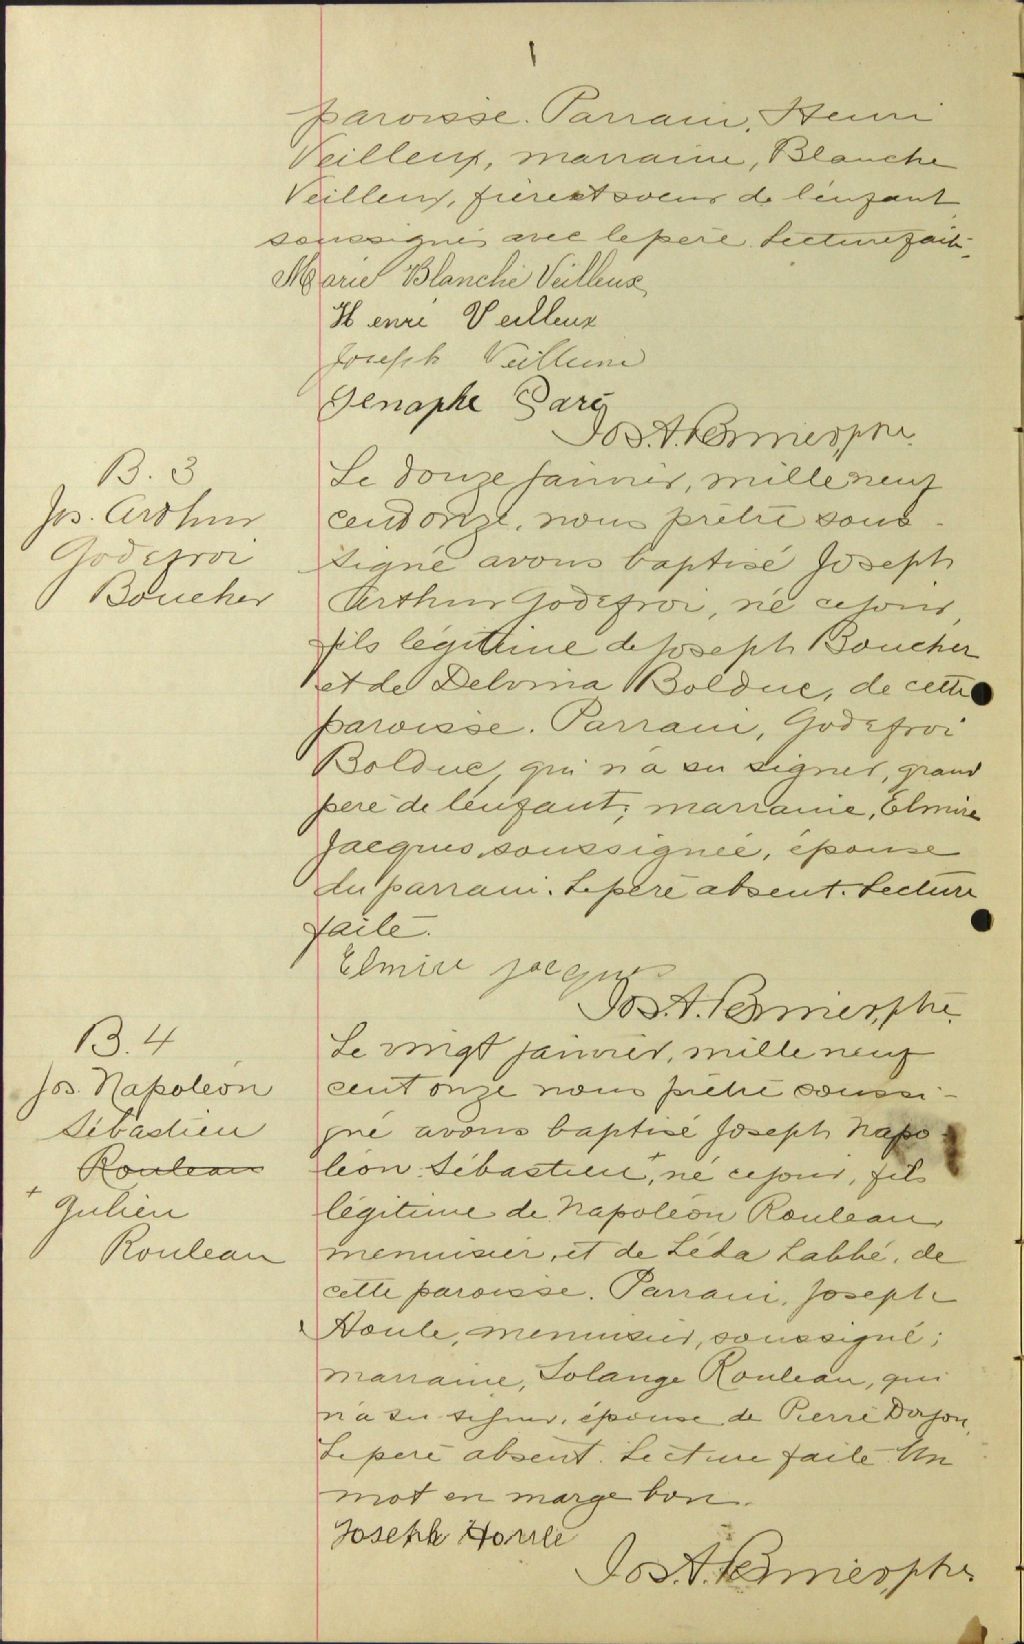 paroisse. Parrain, Henri
Veilleux, marraine, Blanche
Veilleux, frère et soeur de l'enfant
soussignés avec le père. Lecture faite.
Marie Blanche Veilleux
Henri Veilleux
Joseph Veilleux
Genophe Paré
Jos. A. Bernier, ptre.
B. 3
Jos. Arthur
Godefroi
Boucher
Le douze janvier, mil le neuf
cent onze, nous prêtre sous-
signé avons baptisé Joseph
Arthur Godefroi, né ce jour,
fils légitime de Joseph Boucher
et de Delvina Bolduc, de cette
paroisse. Parrain, Godefroi
Bolduc, qui n'a su signer, grand
père de l'enfant; marraine, Elmire
Jacques soussignée, épouse
du parrain. Le père absent. Lecture
faite.
Elmire Jacques
Jos. A. Bernier, ptre.
B. 4
Jos. Napoléon
Sébastien
Rouleau
+ Julien
Rouleau
Le vingt janvier, mille neuf
cent onze nous prêtre soussi-
gné avons baptisé Joseph Napo-
léon Sébastien +, né ce jour, fils
légitime de Napoléon Rouleau,
menuisier, et de Léda Labbé, de
cette paroisse. Parrain, Joseph
Houle, menuisier, soussigné;
marraine, Solange Rouleau, qui
n'a su signer, épouse de Pierre
Le père absent. Lecture faite. Un
mot en marge bon.
Joseph Houle
Jos. A. Bernier, ptre.